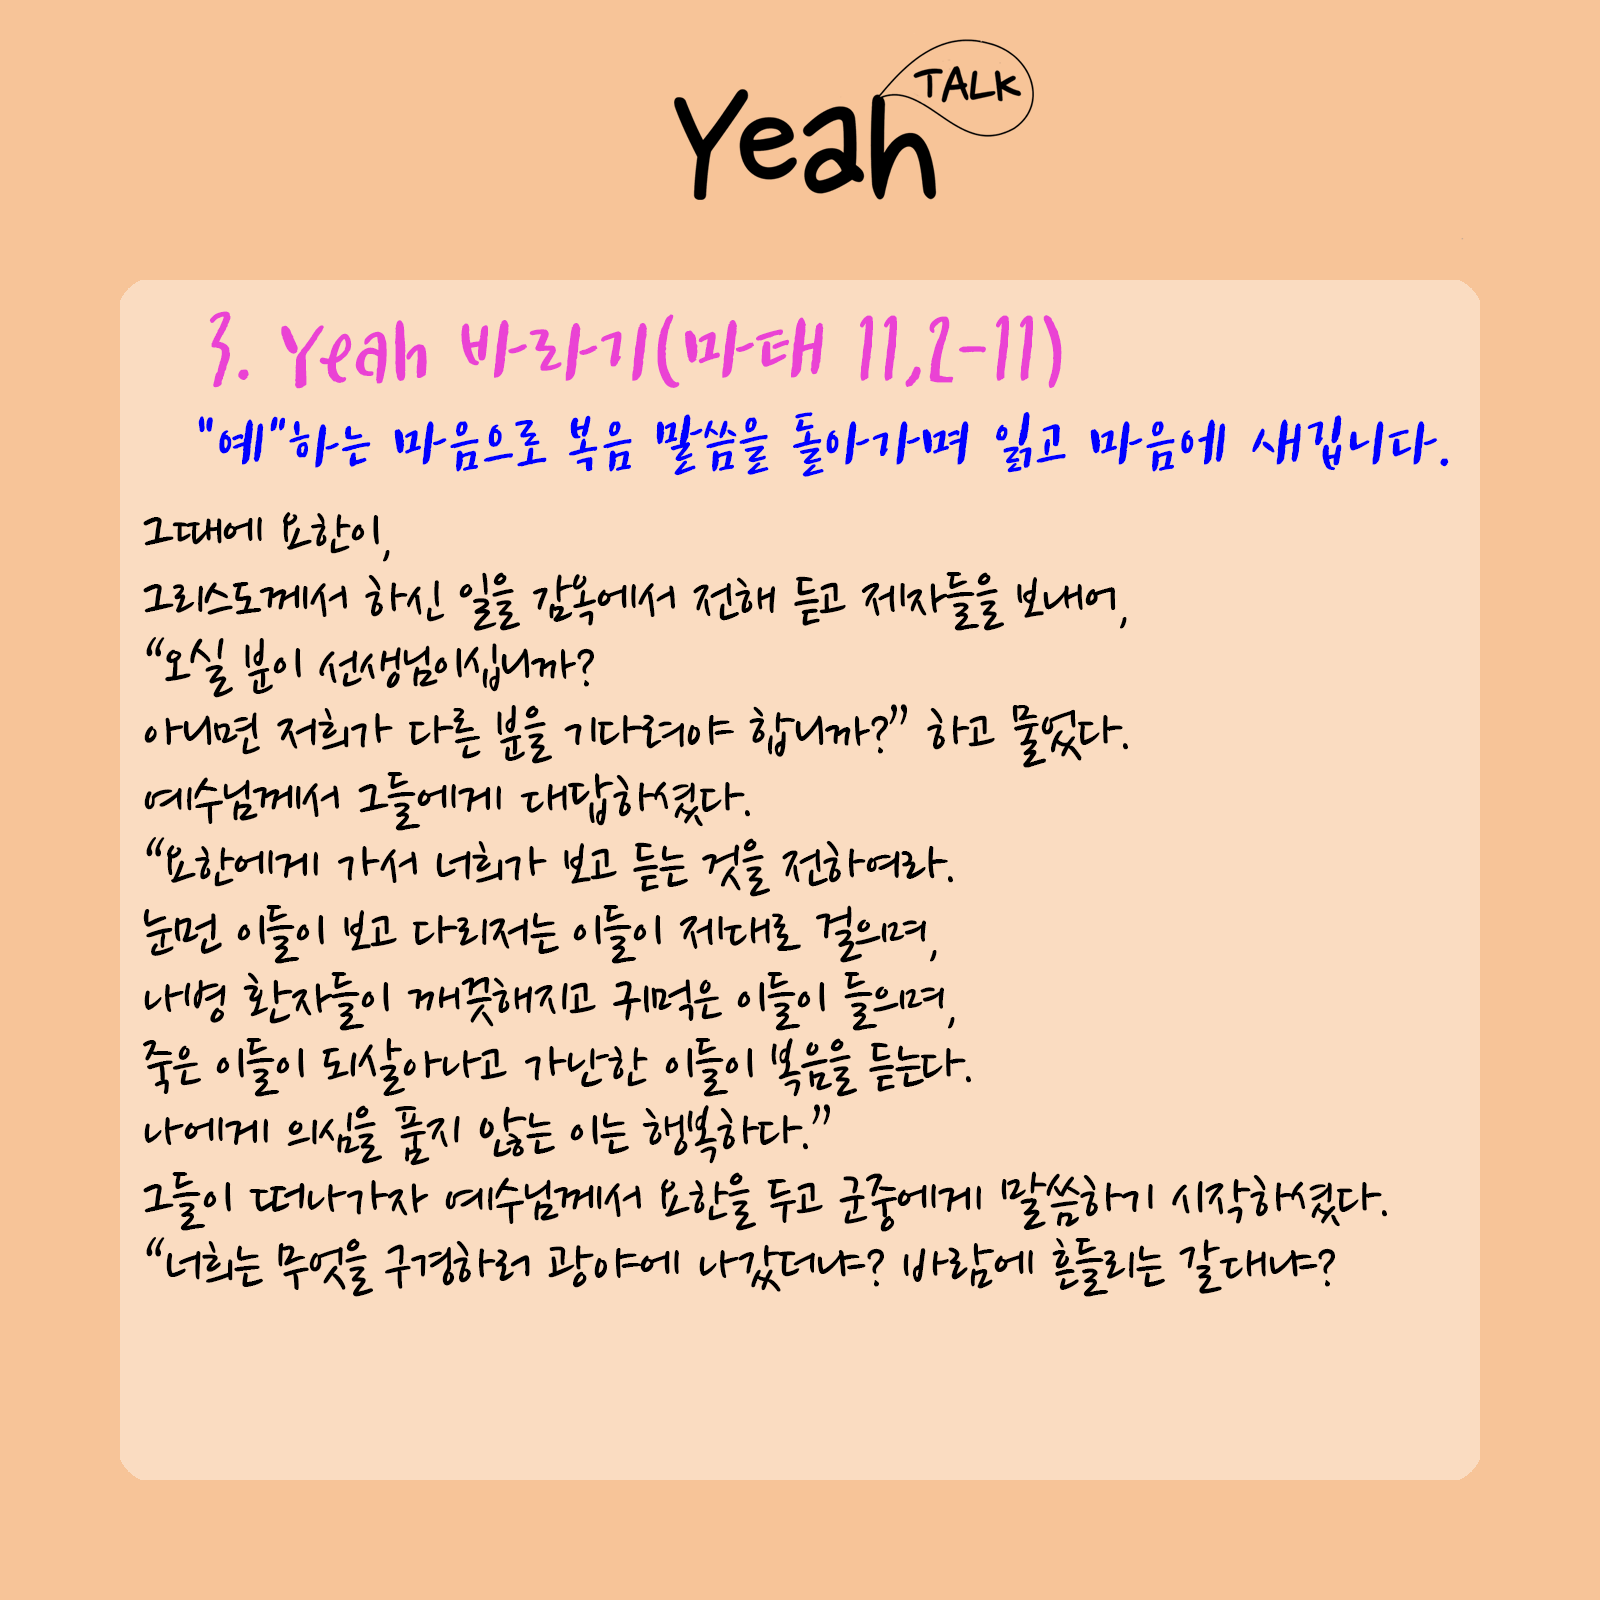 Yeah TALK
3. Yeah 바라기(마태 11,2-11)
"예"하는 마음으로 복음 말씀을 돌아가며 읽고 마음에 새깁니다.
그때에 요한이,
그리스도께서 하신 일을 감옥에서 전해 듣고 제자들을 보내어,
“오실 분이 선생님이십니까?
아니면 저희가 다른 분을 기다려야 합니까?” 하고 물었다.
예수님께서 그들에게 대답하셨다.
“요한에게 가서 너희가 보고 듣는 것을 전하여라.
눈먼 이들이 보고 다리저는 이들이 제대로 걸으며,
나병 환자들이 깨끗해지고 귀먹은 이들이 들으며,
죽은 이들이 되살아나고 가난한 이들이 복음을 듣는다.
나에게 의심을 품지 않는 이는 행복하다.”
그들이 떠나가자 예수님께서 요한을 두고 군중에게 말씀하기 시작하셨다.
“너희는 무엇을 구경하러 광야에 나갔더냐? 바람에 흔들리는 갈대냐?